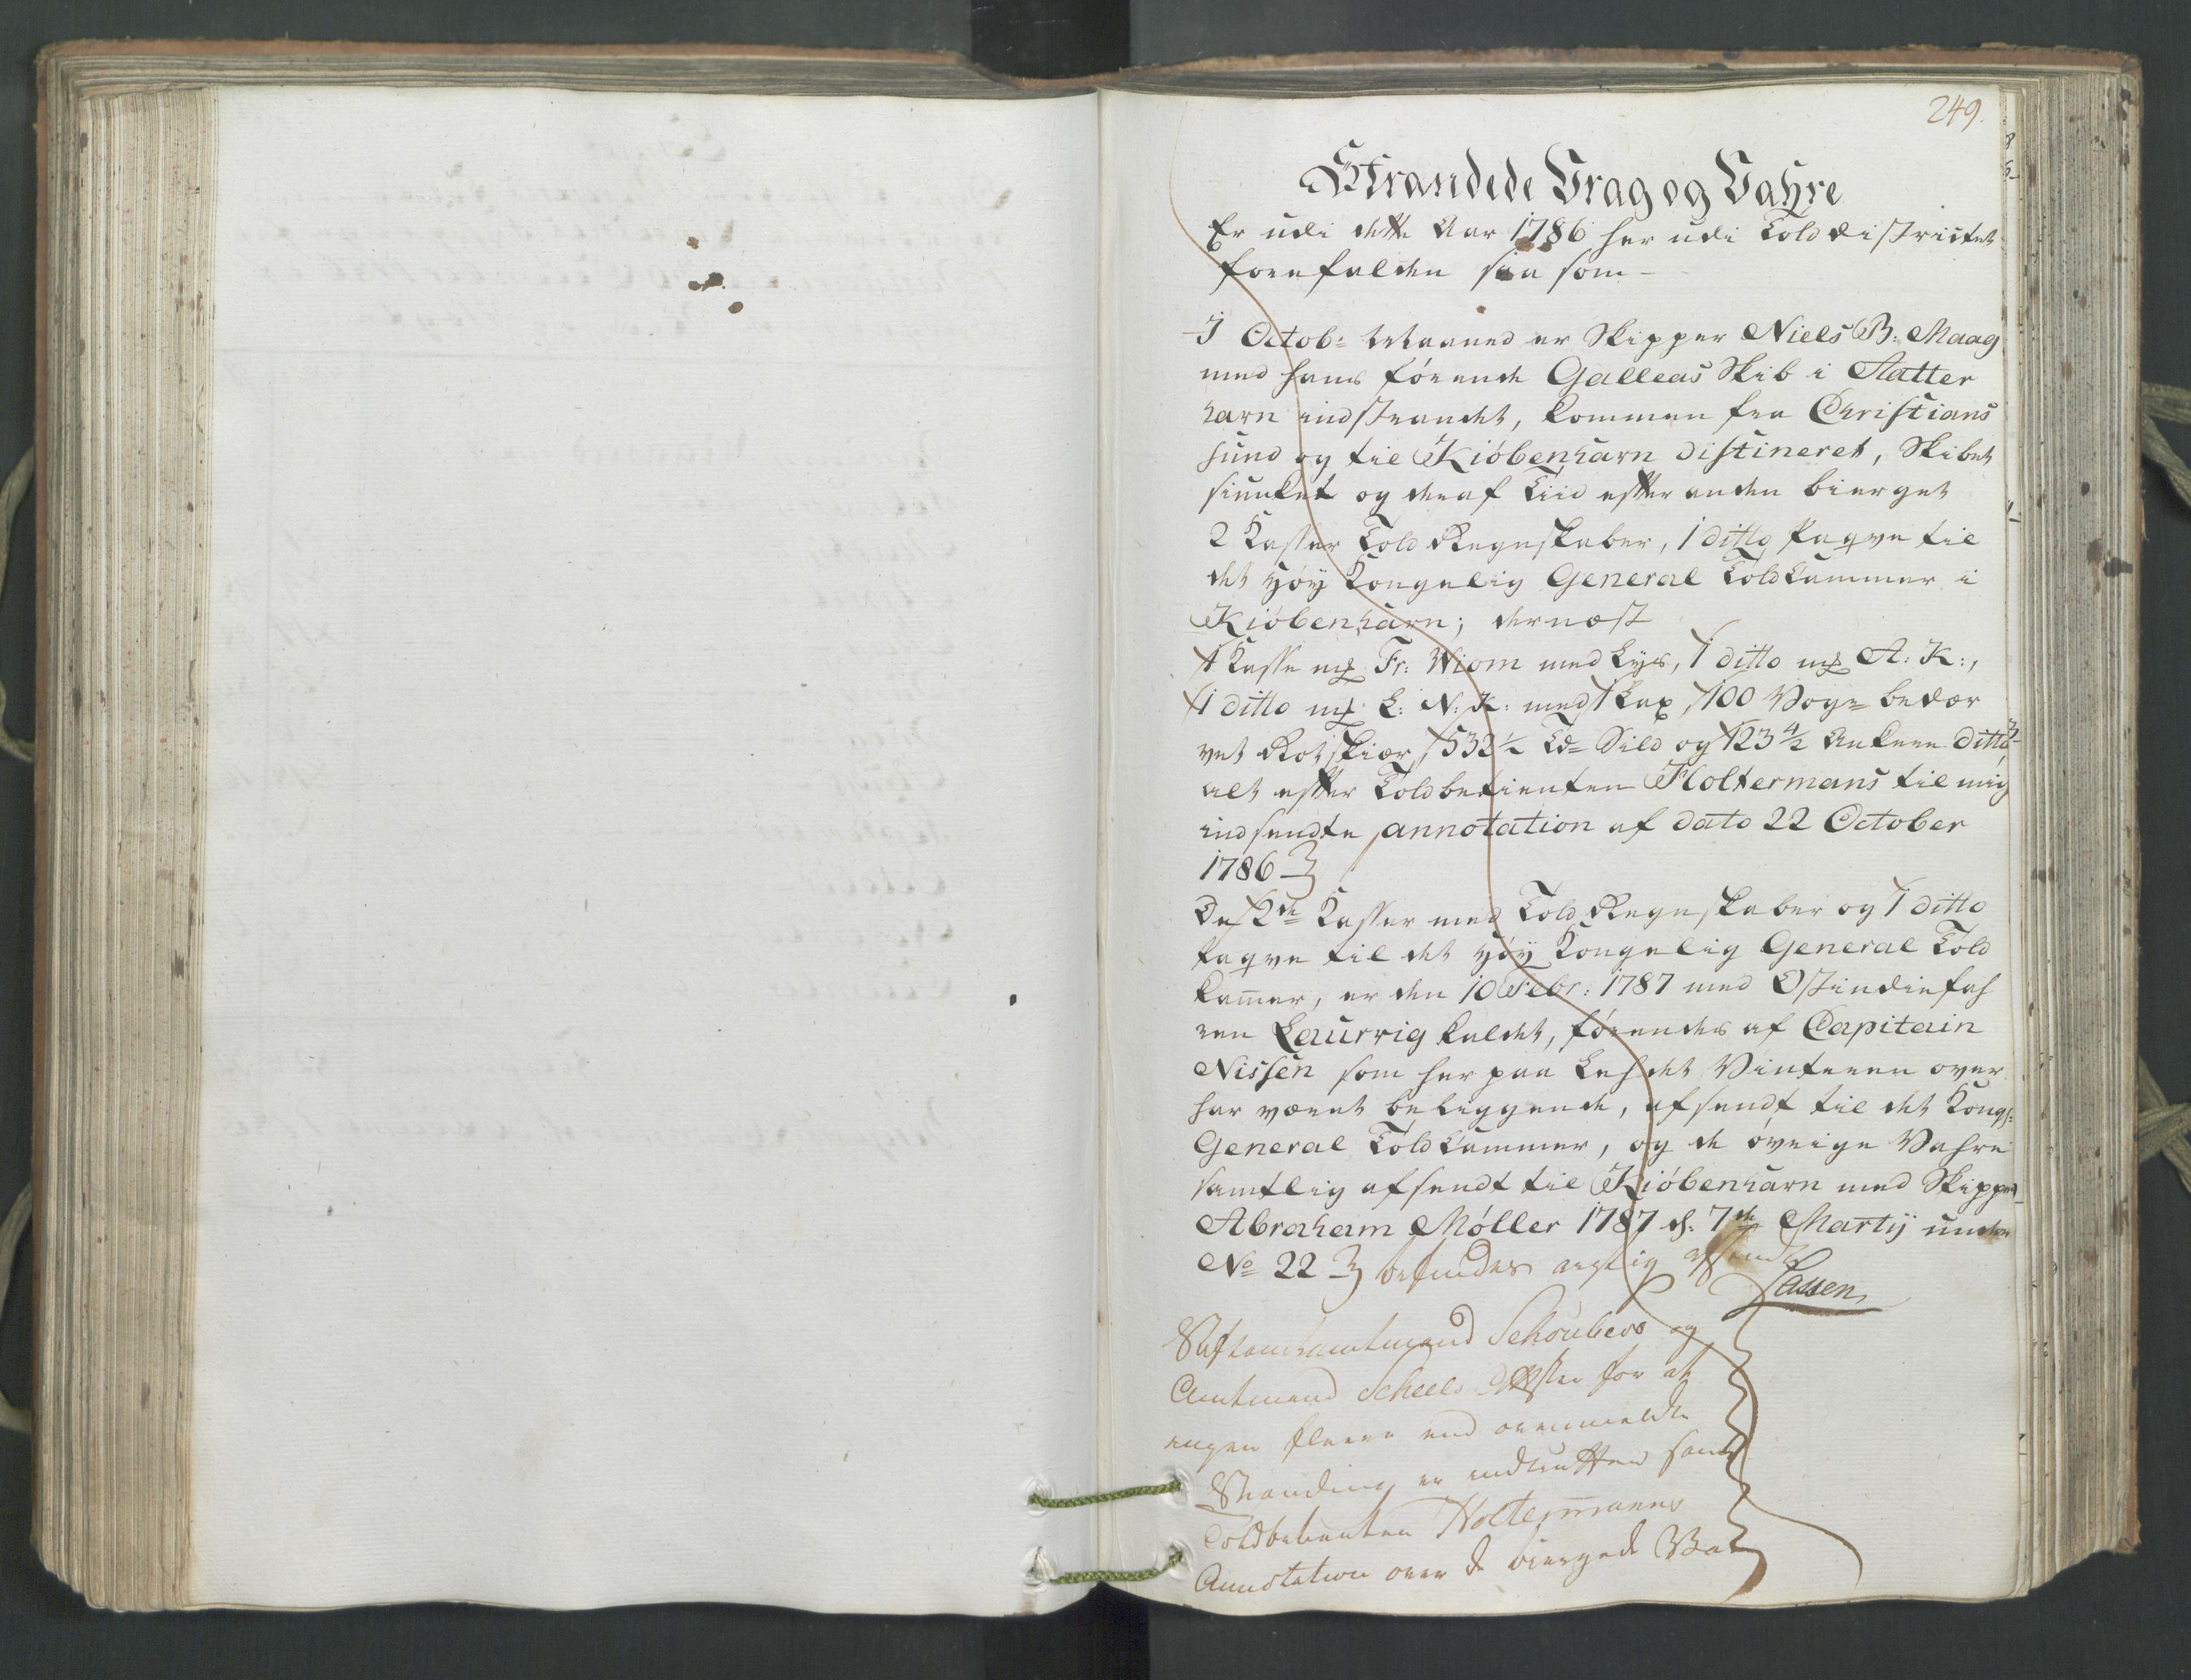 249.
Strandede Vrag og Vahre
Er udi dette Aar 1786 her udi Told districtet
forefalden saa som -
I Octob: Maaned er Skipper Niels B: Maag
med hans förende Galleas Skib i Flatter
havn indstrandet, kommen fra Christians
sund og til Kiöbenhavn distineret, Skibet
siunket og deraf Tiid effter anden bierget
2 Kasser Told Regnskaber, 1 ditto faqve til
det Höy Kongelig General Told Cammer i
Kiöbenhavn; dernæst
1 Kasse mk Fr: Wiom med Lys, 1 ditto mk A: K:,
1 ditto mk L: N: K: med Lax, 100 Vog bedær
vet Rotskiær, 532 1/2 Td Sild og 123 4/2 Ankere ditto
alt effter Toldbetienten Holtermans til mig
indsendte annotation af dato 22 October
1786
De 2de Kasser med Told Regnskaber og 1 ditto
faqve til det Höy Kongelig General Told
kammer, er den 10 Febr: 1787 med Ostindiefah
ren Laurvig kaldet, förendes af Capitain
Nissen som her paa Lehdet Vinteren over
har været beliggende, afsendt til det Kongl:
General Told Cammer, og de övrige Vahre
samtlig afsendt til Kiöbenhavn med Skipper
Abraham Möller 1787 d. 7de Martij under
No 22 befindes rigtig afsendt
Lassen
Stiftamtmand Schoubers og
Amtmand Scheels Attester for at
ingen fleere end ovenmeldte
Stranding er indtruffen samt
Toldbetienten Holtermanns
Annotation over de biergede Va